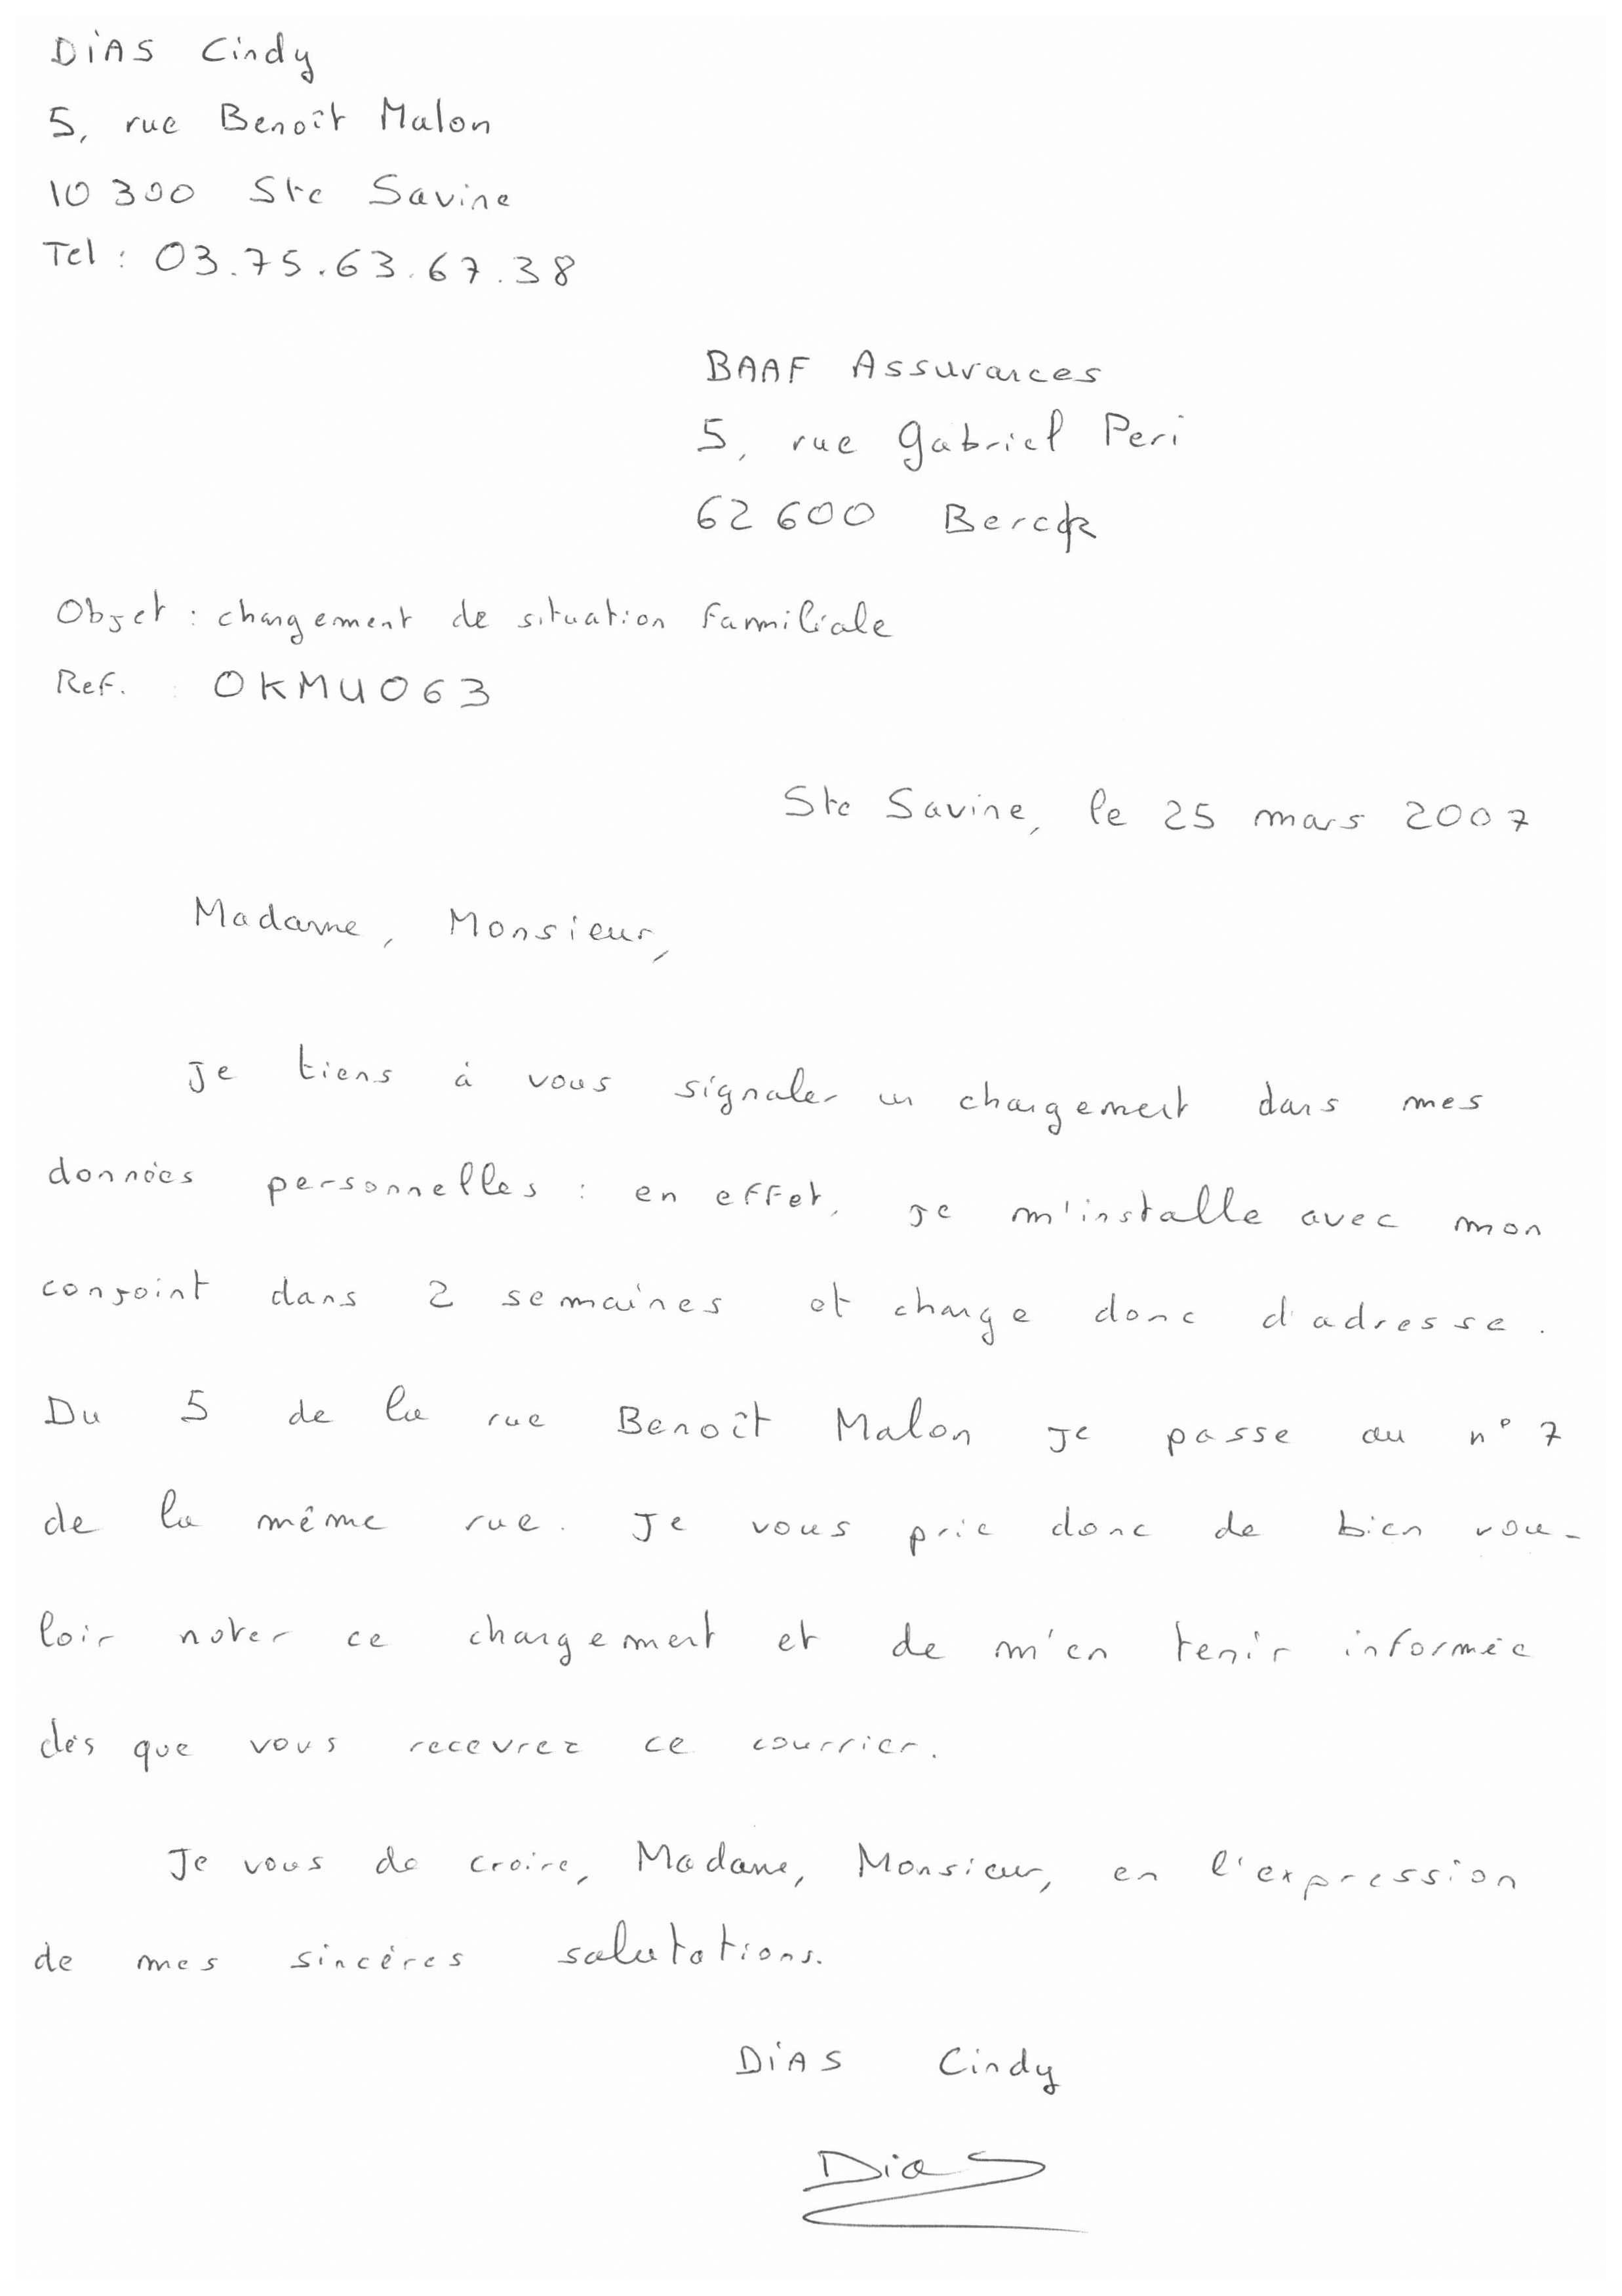 DiAS Cindy
5, rue Benoît Malon
10 300 Ste Savine
Tel : 03.75.63.67.38
BAAF Assurances
5, rue Gabriel Peri
62 600 Berck
Objet : changement de situation familiale
Ref. : OKMUO63
Ste Savine, le 25 mars 2007
Madame, Monsieur,
Je tiens à vous signaler un changement dans mes
données personnelles : en effet, je m'installe avec mon
conjoint dans 2 semaines et change donc d'adresse.
Du 5 de la rue Benoît Malon je passe au n° 7
de la même rue. Je vous prie donc de bien vou-
loir noter ce changement et de m'en tenir informée
dès que vous recevrez ce courrier.
Je vous de croire, Madame, Monsieur, en l'expression
de mes sincères salutations.
DiAS Cindy
Dias